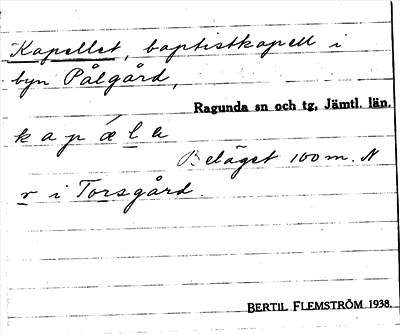 Kapellet, baptistkapell i
byn Pålgård,
Ragunda sn och tg, Jämtl. län.
k a p ǽ l e
Beläget 100 m. N
r i Torsgård.
BERTIL FLEMSTRÖM 1938.